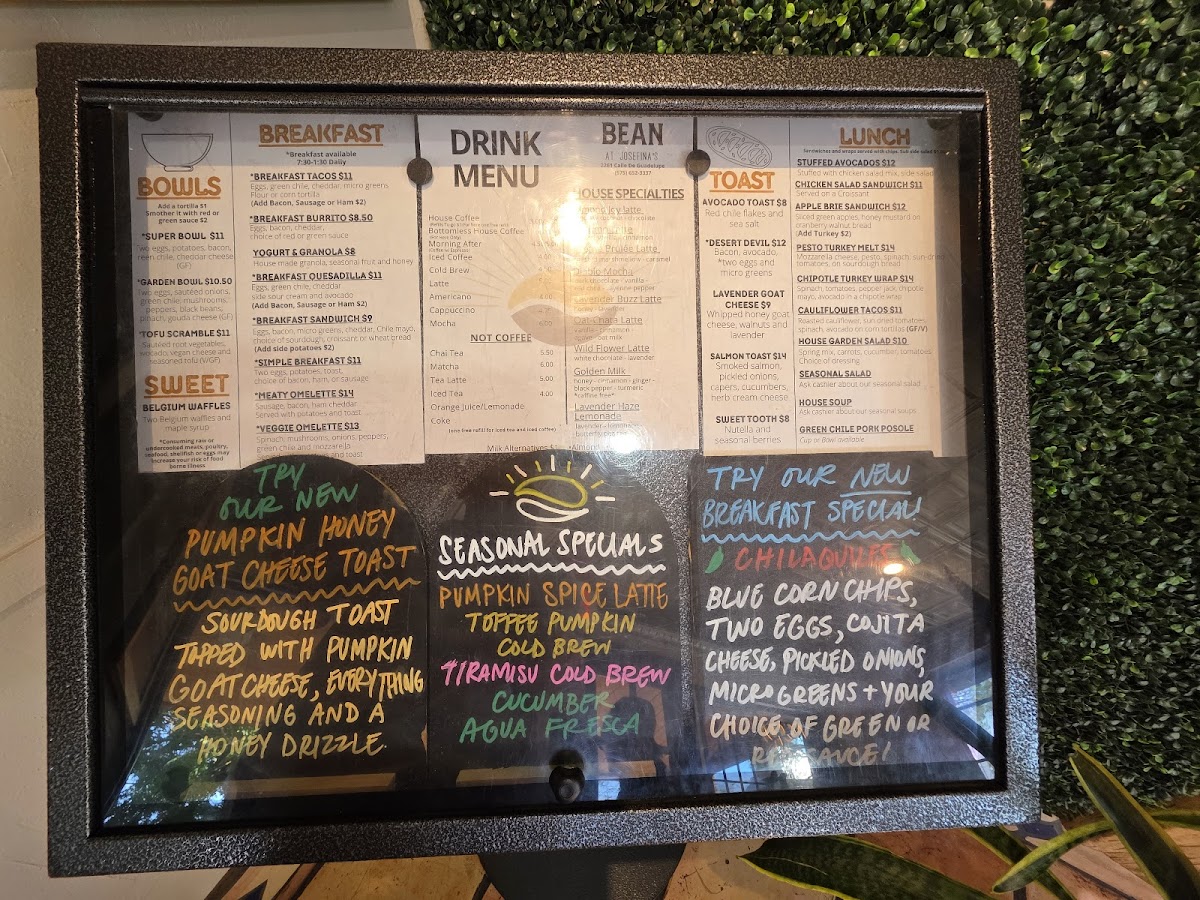 BOWLS
Add a tortilla $1
Smother it with red or
green sauce $2
*SUPER BOWL $11
Two eggs, potatoes, bacon,
green chile, cheddar cheese
(GF)
*GARDEN BOWL $10.50
Two eggs, sauteed onions,
green chile, mushrooms,
peppers, black beans,
spinach, gouda cheese (GF)
*TOFU SCRAMBLE $11
Sauteed root vegetables,
avocado, vegan cheese and
seasoned tofu (V/GF)
SWEET
BELGIUM WAFFLES
Two Belgium waffles and
maple syrup
*Consuming raw or
undercooked meats, poultry,
seafood, shellfish or eggs may
increase your risk of food
borne illness
BREAKFAST
*Breakfast available
7:30-1:30 Daily
*BREAKFAST TACOS $11
Eggs, green chile, cheddar, micro greens
Flour or corn tortilla
(Add Bacon, Sausage or Ham $2)
*BREAKFAST BURRITO $8.50
Eggs, bacon, cheddar,
choice of red or green sauce
YOGURT & GRANOLA $8
House made granola, seasonal fruit and honey
*BREAKFAST QUESADILLA $11
Eggs, green chile, cheddar
side sour cream and avocado
(Add Bacon, Sausage or Ham $2)
*BREAKFAST SANDWICH $9
Eggs, bacon, micro greens, cheddar, Chile mayo,
choice of sourdough, croissant or wheat bread
(Add side potatoes $2)
*SIMPLE BREAKFAST $11
Two eggs, potatoes, toast,
choice of bacon, ham, or sausage
*MEATY OMELETTE $14
Sausage, bacon, ham cheddar
Served with potatoes and toast
*VEGGIE OMELETTE $13
Spinach, mushrooms, onions, peppers,
green chile and mozzerella
DRINK
MENU
House Coffee
Bottomless House Coffee
Morning After
Iced Coffee
Cold Brew
Latte
Americano
Cappuccino
Mocha
NOT COFFEE
Chai Tea 5.50
Matcha 6.00
Tea Latte 5.00
Iced Tea 4.00
Orange Juice/Lemonade
Coke
(one free refill for iced tea and iced coffee)
Milk Alternatives
BEAN
AT JOSEFINA'S
2261 Calle De Guadalupe
HOUSE SPECIALTIES
Mocha
Lavender Buzz Latte
Latte
Wild Flower Latte
white chocolate - lavender
Golden Milk
honey - cinnamon - ginger -
black pepper - turmeric
*caffeine free*
Lavender Haze
Lemonade
TOAST
AVOCADO TOAST $8
Red chile flakes and
sea salt
*DESERT DEVIL $12
Bacon, avocado,
*two eggs and
micro greens
LAVENDER GOAT
CHEESE $9
Whipped honey goat
cheese, walnuts and
lavender
SALMON TOAST $14
Smoked salmon,
pickled onions,
capers, cucumbers,
herb cream cheese
SWEET TOOTH $8
Nutella and
seasonal berries
LUNCH
STUFFED AVOCADOS $12
Stuffed with chicken salad mix, side salad
CHICKEN SALAD SANDWICH $11
Served on a Croissant
APPLE BRIE SANDWICH $12
Sliced green apples, honey mustard on
cranberry walnut bread
(Add Turkey $2)
PESTO TURKEY MELT $14
Mozzarella cheese, pesto, spinach, sun-dried
tomatoes, on sourdough bread
CHIPOTLE TURKEY WRAP $14
Spinach, tomatoes, pepper jack, chipotle
mayo, avocado in a chipotle wrap
CAULIFLOWER TACOS $11
Roasted cauliflower, sun dried tomatoes,
spinach, avocado on corn tortillas (GF/V)
HOUSE GARDEN SALAD $10
Spring mix, carrots, cucumber, tomatoes
Choice of dressing
SEASONAL SALAD
Ask cashier about our seasonal salad
HOUSE SOUP
Ask cashier about our seasonal soups
GREEN CHILE PORK POSOLE
Cup or Bowl available
TRY
OUR NEW
PUMPKIN HONEY
GOAT CHEESE TOAST
SOURDOUGH TOAST
TOPPED WITH PUMPKIN
GOAT CHEESE, EVERYTHING
SEASONING AND A
HONEY DRIZZLE.
SEASONAL SPECIALS
PUMPKIN SPICE LATTE
TOFFEE PUMPKIN
COLD BREW
TIRAMISU COLD BREW
CUCUMBER
AGUA FRESCA
TRY OUR NEW
BREAKFAST SPECIAL!
CHILAQUILES
BLUE CORN CHIPS,
TWO EGGS, COJITA
CHEESE, PICKLED ONIONS,
MICRO GREENS + YOUR
CHOICE OF GREEN OR
RED SAUCE!